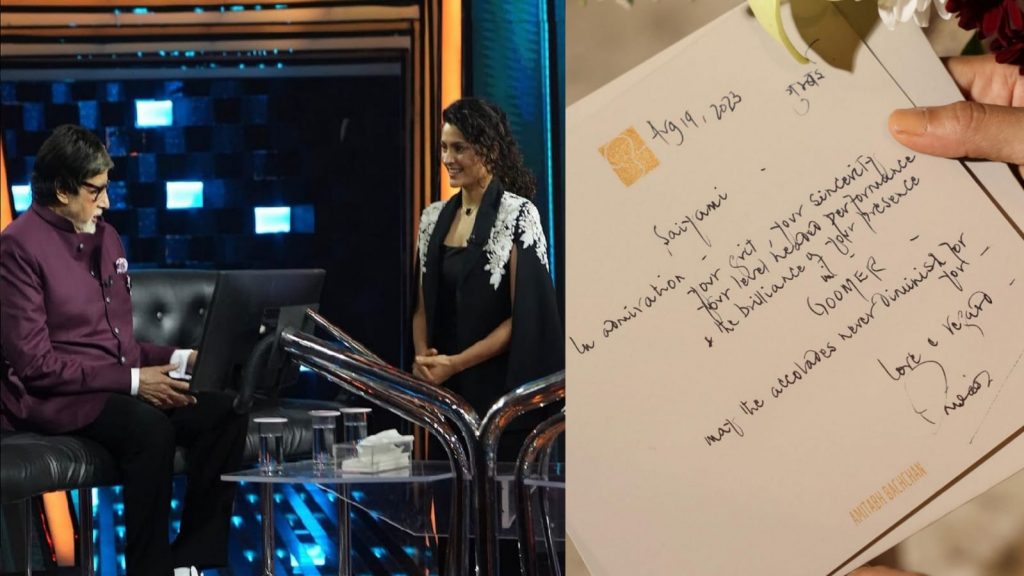 Aug 19, 2023
मुंबई
Saiyami -
In admiration -
your Grit, your sincerity
your beloved performance
& the brilliance of your presence
in
GOOMER
may the accolades never diminish for
you -
love & regard -
AMITABH BACHCHAN